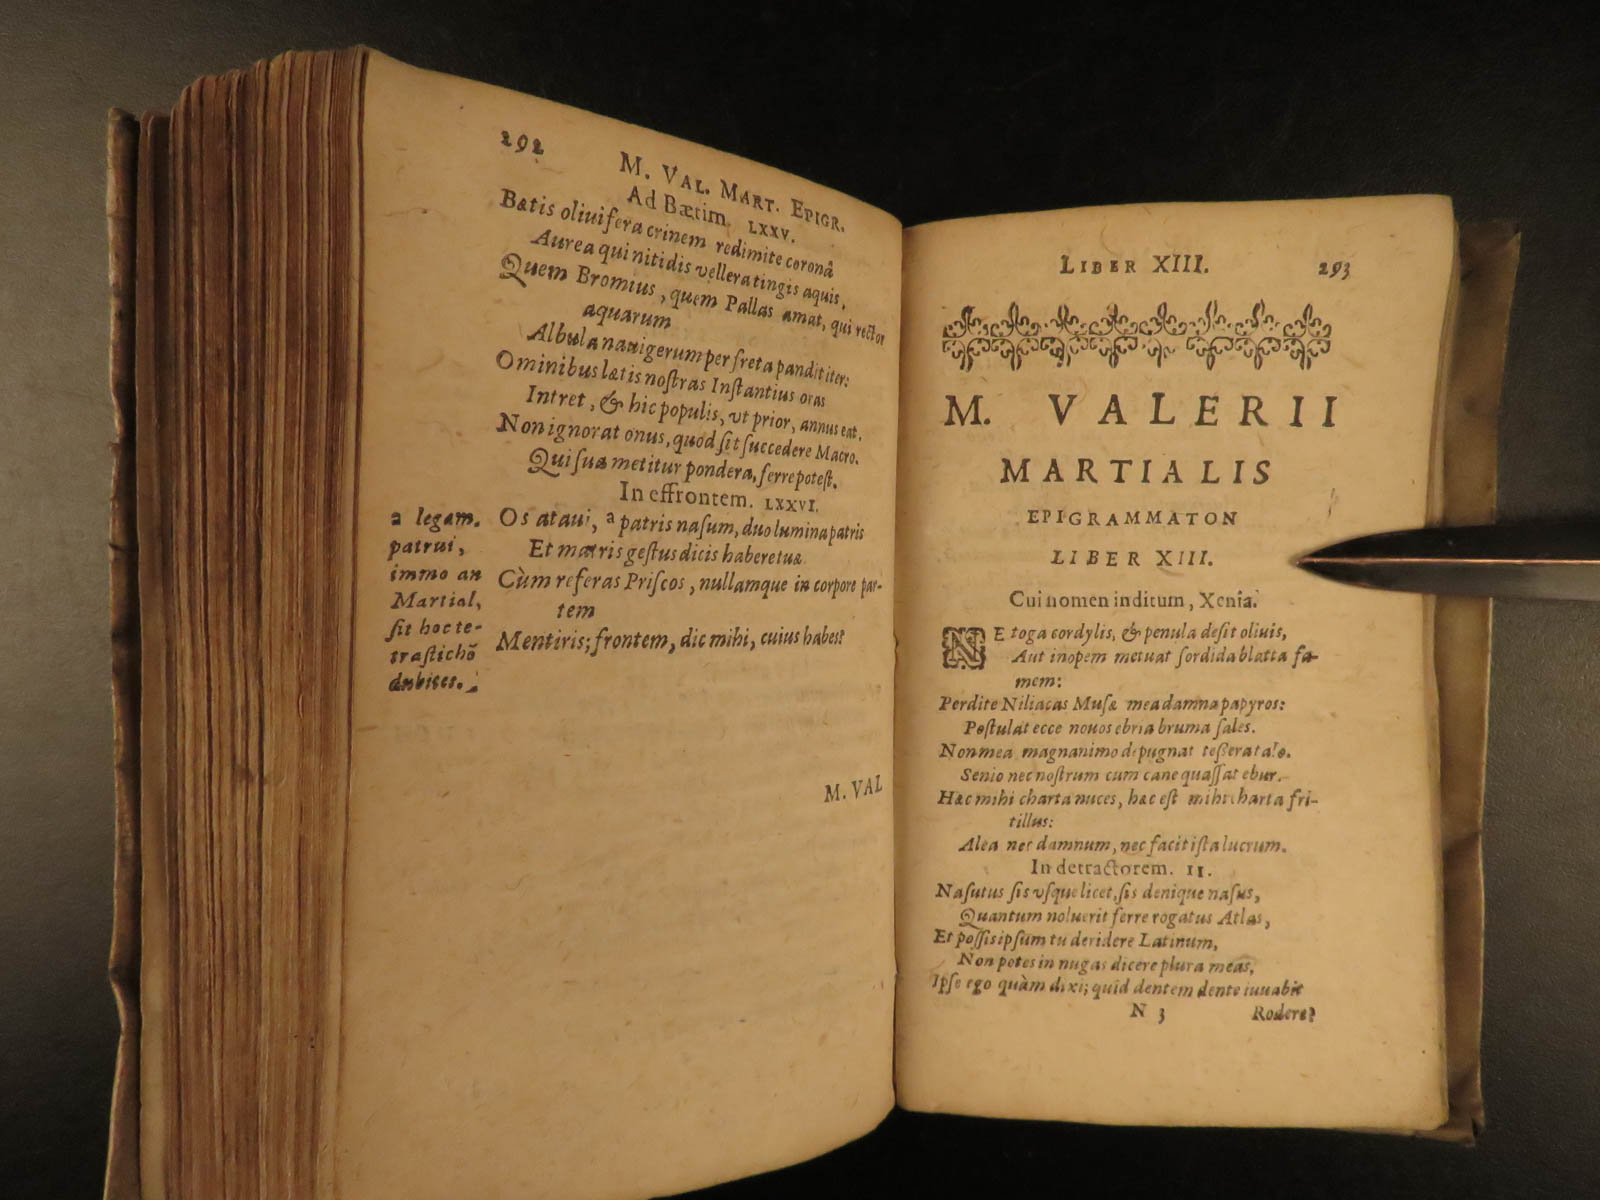 292
M. VAL. MART. EPIGR.
Ad Bætim. LXXV.
Bætis oliuifera crinem redimite coronâ
Aurea qui nitidis vellera tingis aquis,
Quem Bromius, quem Pallas amat, qui rector
aquarum
Albula nauigerum per freta pandit iter:
Ominibus lætis nostras Instantius oras
Intret, & hic populis, vt prior, annus eat.
Non ignorat onus, quod sit succedere Macro.
Qui sua metitur pondera, ferre potest.
In effrontem. LXXVI.
Os ataui, a patris nasum, duo lumina patris
Et matris gestus dicis habere tuæ
Cùm referas Priscos, nullamque in corpore par-
tem
Mentiris; frontem, dic mihi, cuius habes?
a legam.
patrui,
immo an
Martial,
sit hoc te-
trastichõ
dubites.
M. VAL
LIBER XIII.
293
M. VALERII
MARTIALIS
EPIGRAMMATON
LIBER XIII.
Cui nomen inditum, Xenia.
NE toga cordylis, & penula desit oliuis,
Aut inopem metuat sordida blatta fa-
mem:
Perdite Niliacas Musæ mea damna papyros:
Postulat ecce nouos ebria bruma sales.
Non mea magnanimo depugnat tessera talo.
Senio nec nostrum cum cane quassat ebur.
Hæc mihi charta nuces, hæc est mihi charta fri-
tillus:
Alea nec damnum, nec facit ista lucrum.
In detractorem. II.
Nasutus sis vsque licet, sis denique nasus,
Quantum noluerit ferre rogatus Atlas,
Et possis ipsum tu deridere Latinum,
Non potes in nugas dicere plura meas,
Ipse ego quàm dixi; quid dentem dente iuuabit
N 3
Rodere?